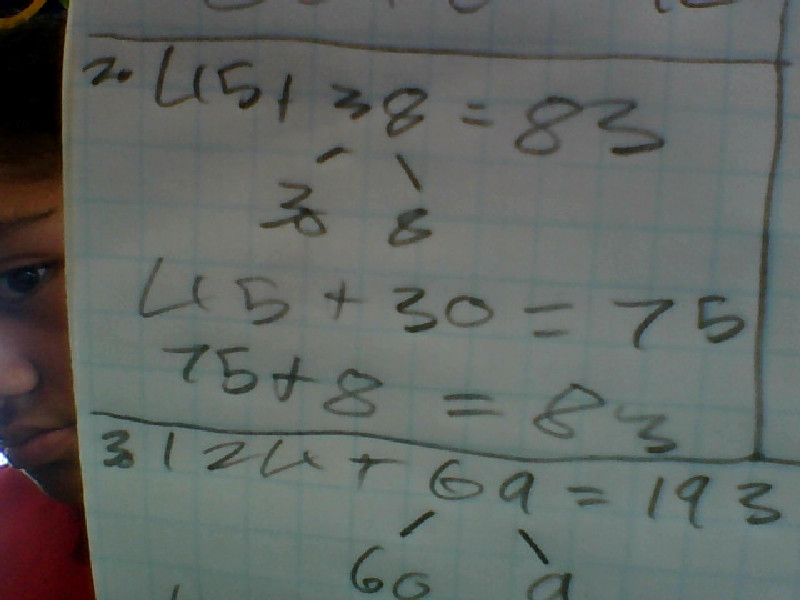 2. 45+ 38 = 83
30 8
45 + 30 = 75
75+8 = 83
3. 124 + 69 = 193
60 9